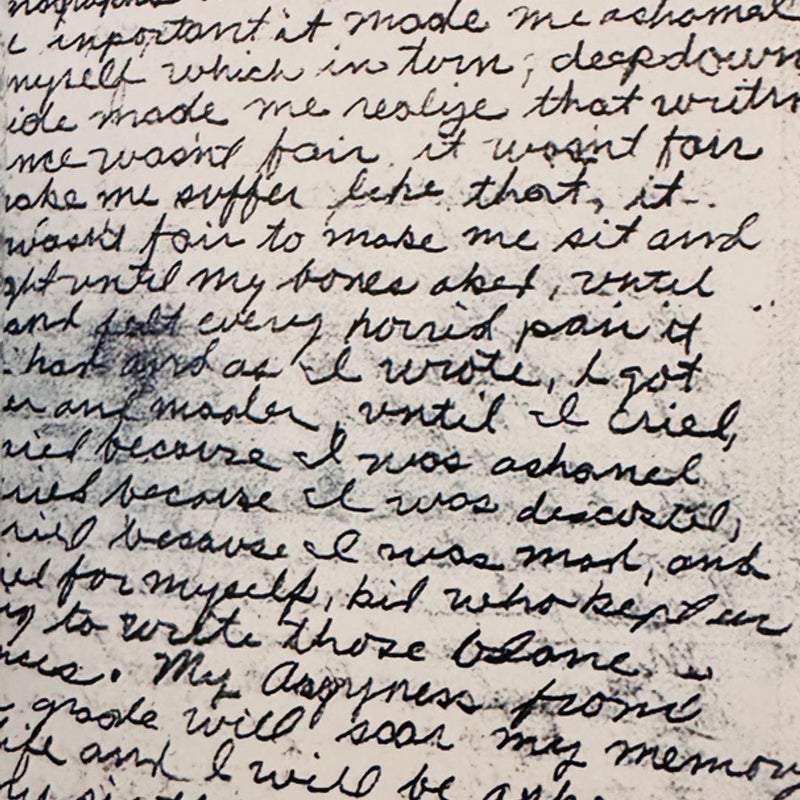 important it made me ashamed
myself which in turn, deepdown
ide made me realize that writin
nce wasn't fair. it wasn't fair
ake me suffer like that, it
wasn't fair to make me sit and
ght until my bones aked, until
and felt every horrid pain it
had and as I wrote, I got
er and madder, until I cried,
ried because I was ashamed
ried because I was descusted,
ried because I was mad, and
ied for myself, kid who kept on
ng to write those
nces. My from
grade will scar my memory
life and I will be